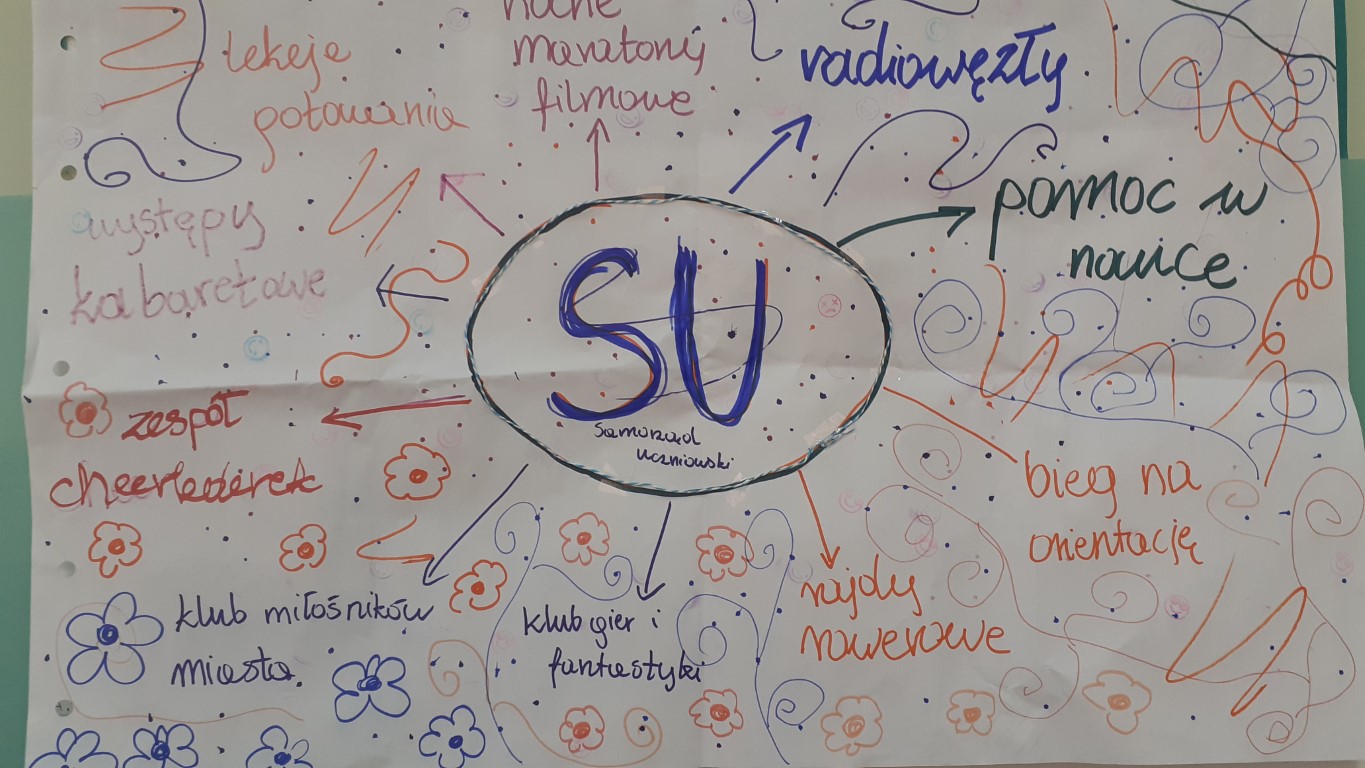 nocne
maratony
filmowe
lekcje
gotowania
radiowęzły
występy
kabaretowe
pomoc w
nauce
SU
Samorząd
Uczniowski
zespół
cheerleaderek
bieg na
orientację
klub miłośników
miasta.
klub gier i
fantastyki
rajdy
rowerowe